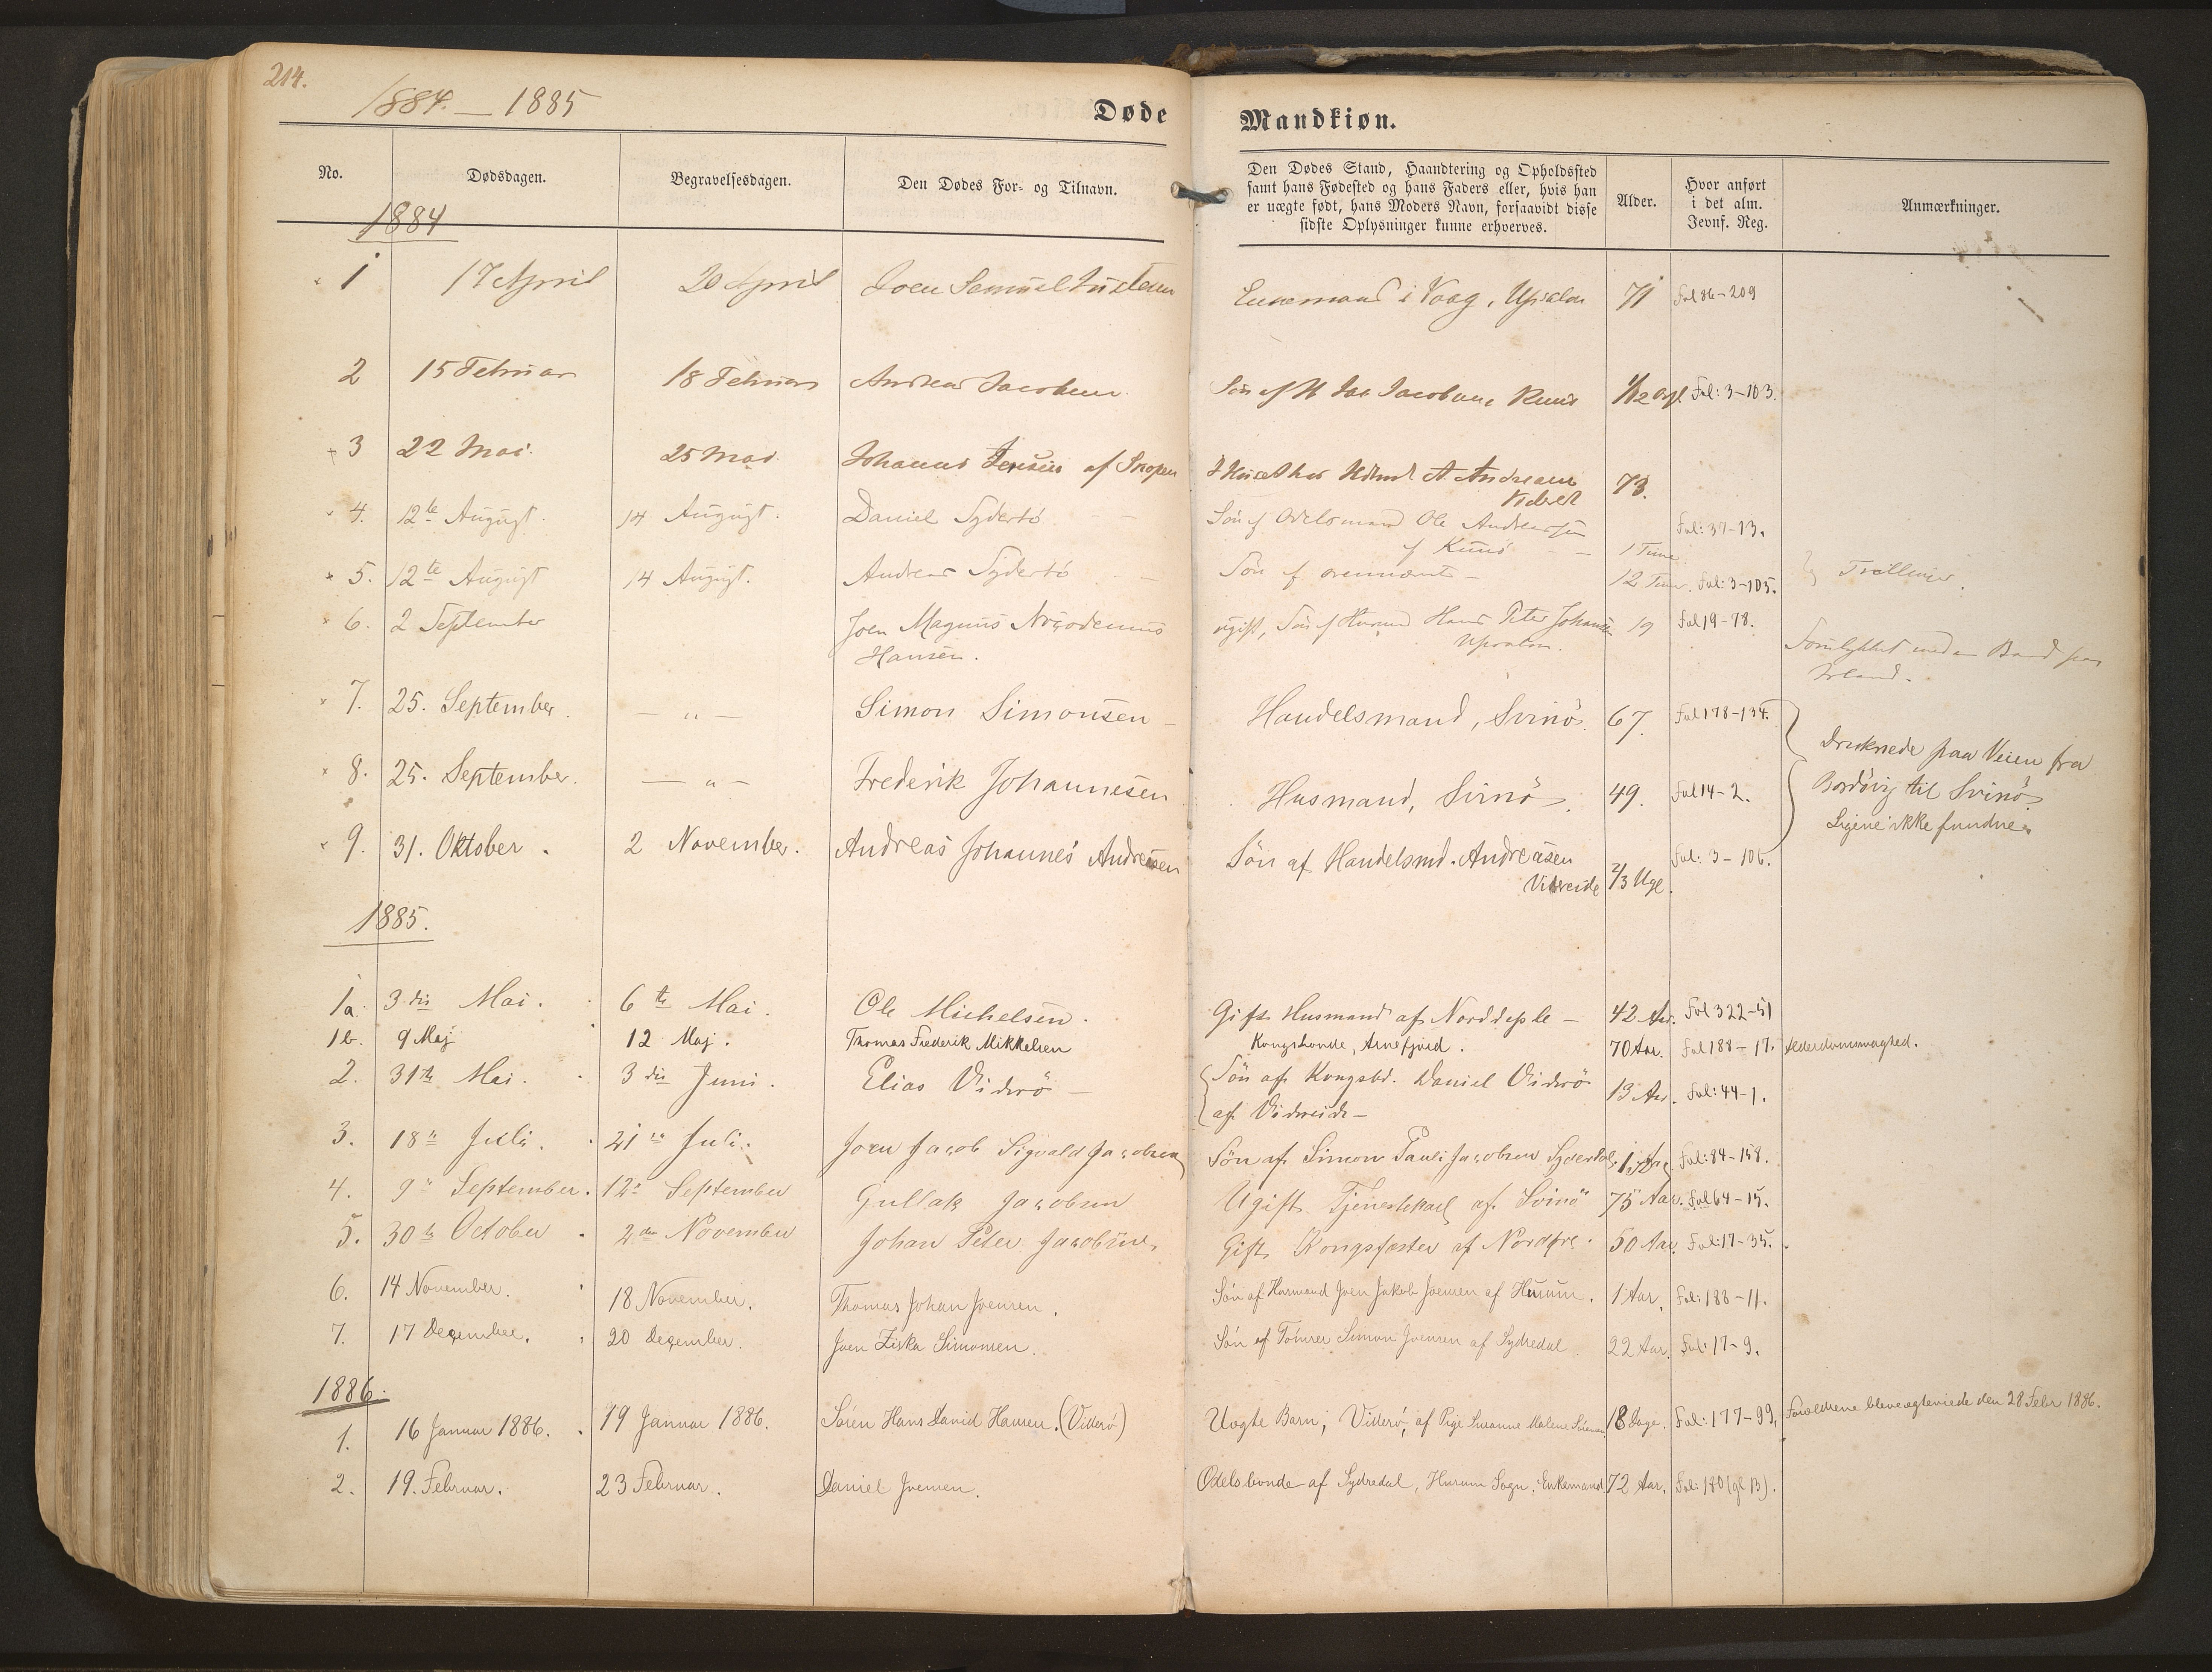 214.
1884. — 1885
Døde Mandkiøn.
No. Dødsdagen. Begravelsesdagen. Den Dødes For- og Tilnavn. Den Dødes Stand, Haandtering og Opholdssted
samt hans Fødested og hans Faders eller, hvis han
er uægte født, hans Moders Navn, forsaavidt disse
sidste Oplysninger kunne erhverves. Alder. Hvor anført
i det alm.
Jevnf. Reg. Anmærkninger.
1884
1 17 April 20 April Joen Samuel Enkemand i Vaag, 71 Fol 86-209
2 15 Februar 18 Februar Andreas Jacobsen Søn af Jacobsen, Kunø Fol: 3-103.
3 22 Mai 25 Mai Johannes Jensen af A. Andreasen 73.
Videreide
4. 12te August. 14 August. Daniel Syderbö Søn af Odelsmand Ole Andreassen Fol: 37-13.
af Kunö — 1 Time
5. 12te August 14 August. Andreas Syderbö Søn af ovennævnte — 12 Timer. Fol: 3-105. Tvillinger.
6. 2 September Joen Magnus Nicodemus ugift, Søn af Husmd Hans Peter Johansen 19 Fol 19-78.
Hansen.
med en Baad fra
Island.
7. 25. September. — " — Simon Simonsen — Handelsmand, Svinö. 67. Fol 178-134.
8. 25. September. — " — Frederik Johannesen Husmand, Svinö. 49. Fol 14-2. Druknede paa Veien fra
Bordövig til Svinö.
Ligene ikke fundne.
9. 31. Oktober. 2 November. Andreas Johannes Andreasen Sön af Handelsmd. Andreasen Fol: 3-106.
Videreide 2/3 Ugl.
1885.
1a. 3die Mai. 6te Mai. Ole Michelsen. Gift Husmand af Norddeple — 42 Aar. Fol 322-51
1b. 9 Maj 12 Maj. Thomas Frederik Mikkelsen Kongsbonde, Arnefjord. 70 Aar. Fol 188-17. Alderdomssvaghed.
2. 31te Mai. 3die Juni. Elias Viderö — Sön af Kongsbd. Daniel Viderö 13 Aar. Fol: 44-1.
af Videreide —
3. 18de Juli. 21de Juli. Joen Jacob Sigvald Jacobsen Sön af Simon Pauli Jacobsen Syderdal, Fol: 84-158.
4. 9de September. 12te September Gullak Jacobsen Ugift Tjenestekarl af Svinö 75 Aar. Fol 64-15.
5. 30te October 2den November Johan Peter Jacobsen, Gift Kongsfæster af Nordöre. 50 Aar. Fol: 17-35.
6. 14 November. 18 November. Thomas Johan Joensen. Sön af Husmand Joen Jakob Joensen af Husum. 1 Aar. Fol: 188-11.
7. 17 Dezember. 20 Dezember. Joen Ziska Simonsen. Sön af Tömrer Simon Joensen af Sydredal. 22 Aar. Fol: 17-9.
1886.
1. 16 Januar 1886. 19 Januar 1886. Sören Hans David Hansen. (Viderö) Uægte Barn, Viderö, af Pige Susanne Malene Sörensen 18 Dage. Fol: 177-99, Forældrene bleve ægteviede den 28 Febr 1886.
2. 19. Februar. 23 Februar. Daniel Joensen. Odelsbonde af Sydredal, Husum Sogn. Enkemand 72 Aar. Fol: 180 (gl B).